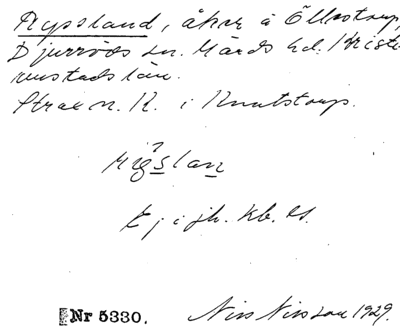 Ryssland, åker å Ölkstorp,
Djurröds sn. Gärds hd. Kristi-
anstads län.
Strax n. K. i Knutstorp.
Ryslan
Ej i jb. kb. ls.
Nr 5330. Nils Nilsson 1929.